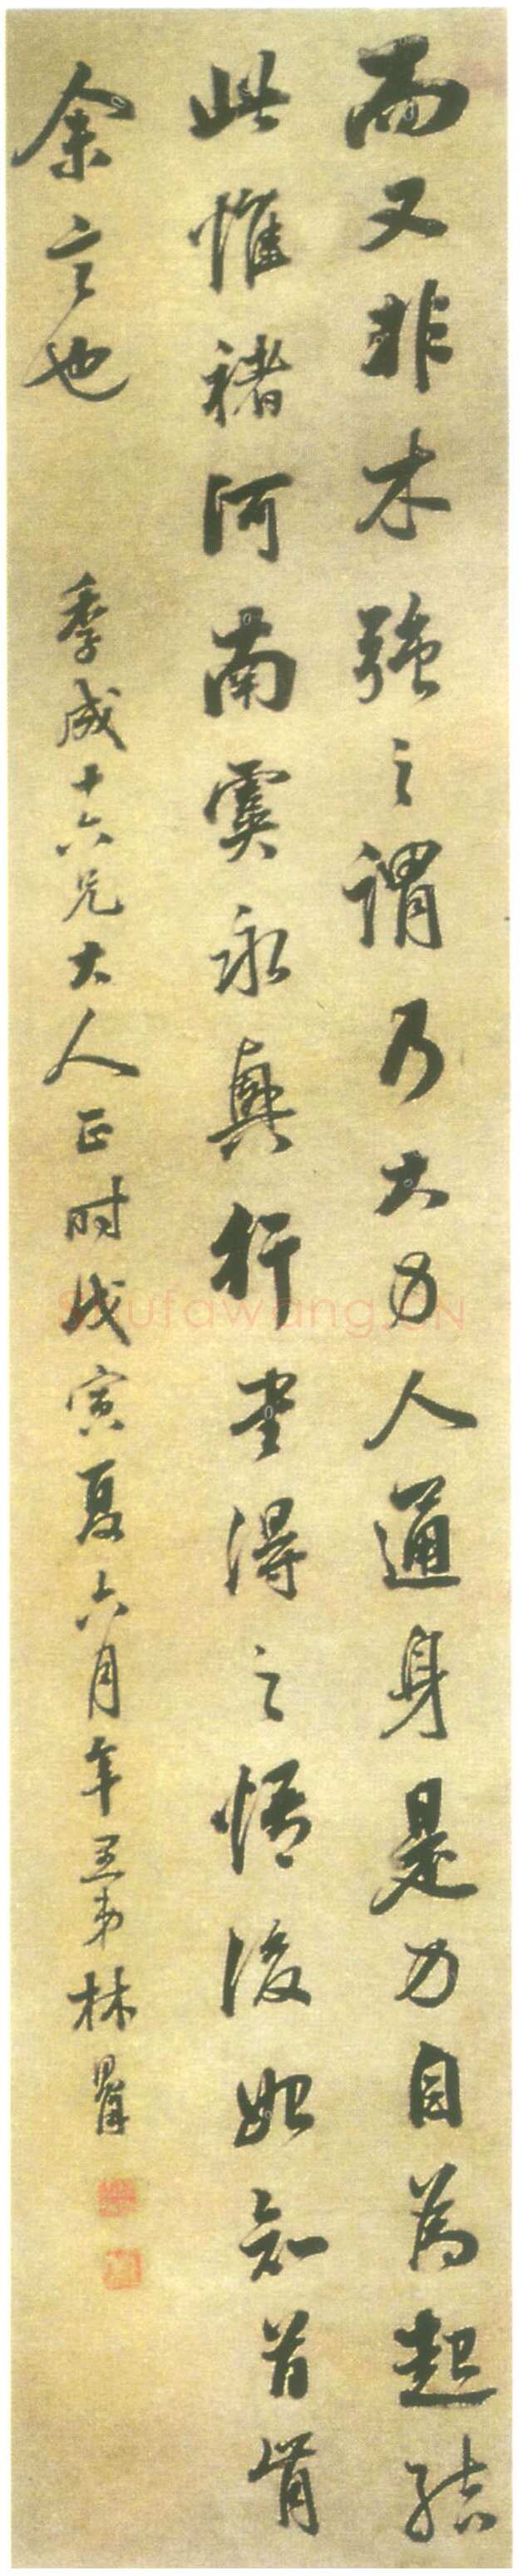 而又非木強之謂乃大力人通身是力自為起結
此惟褚河南虞永興行書得之悟後始知首肯
余言也
季成十六兄大人正时戊寅夏六月年五弟林
shufawang.CN